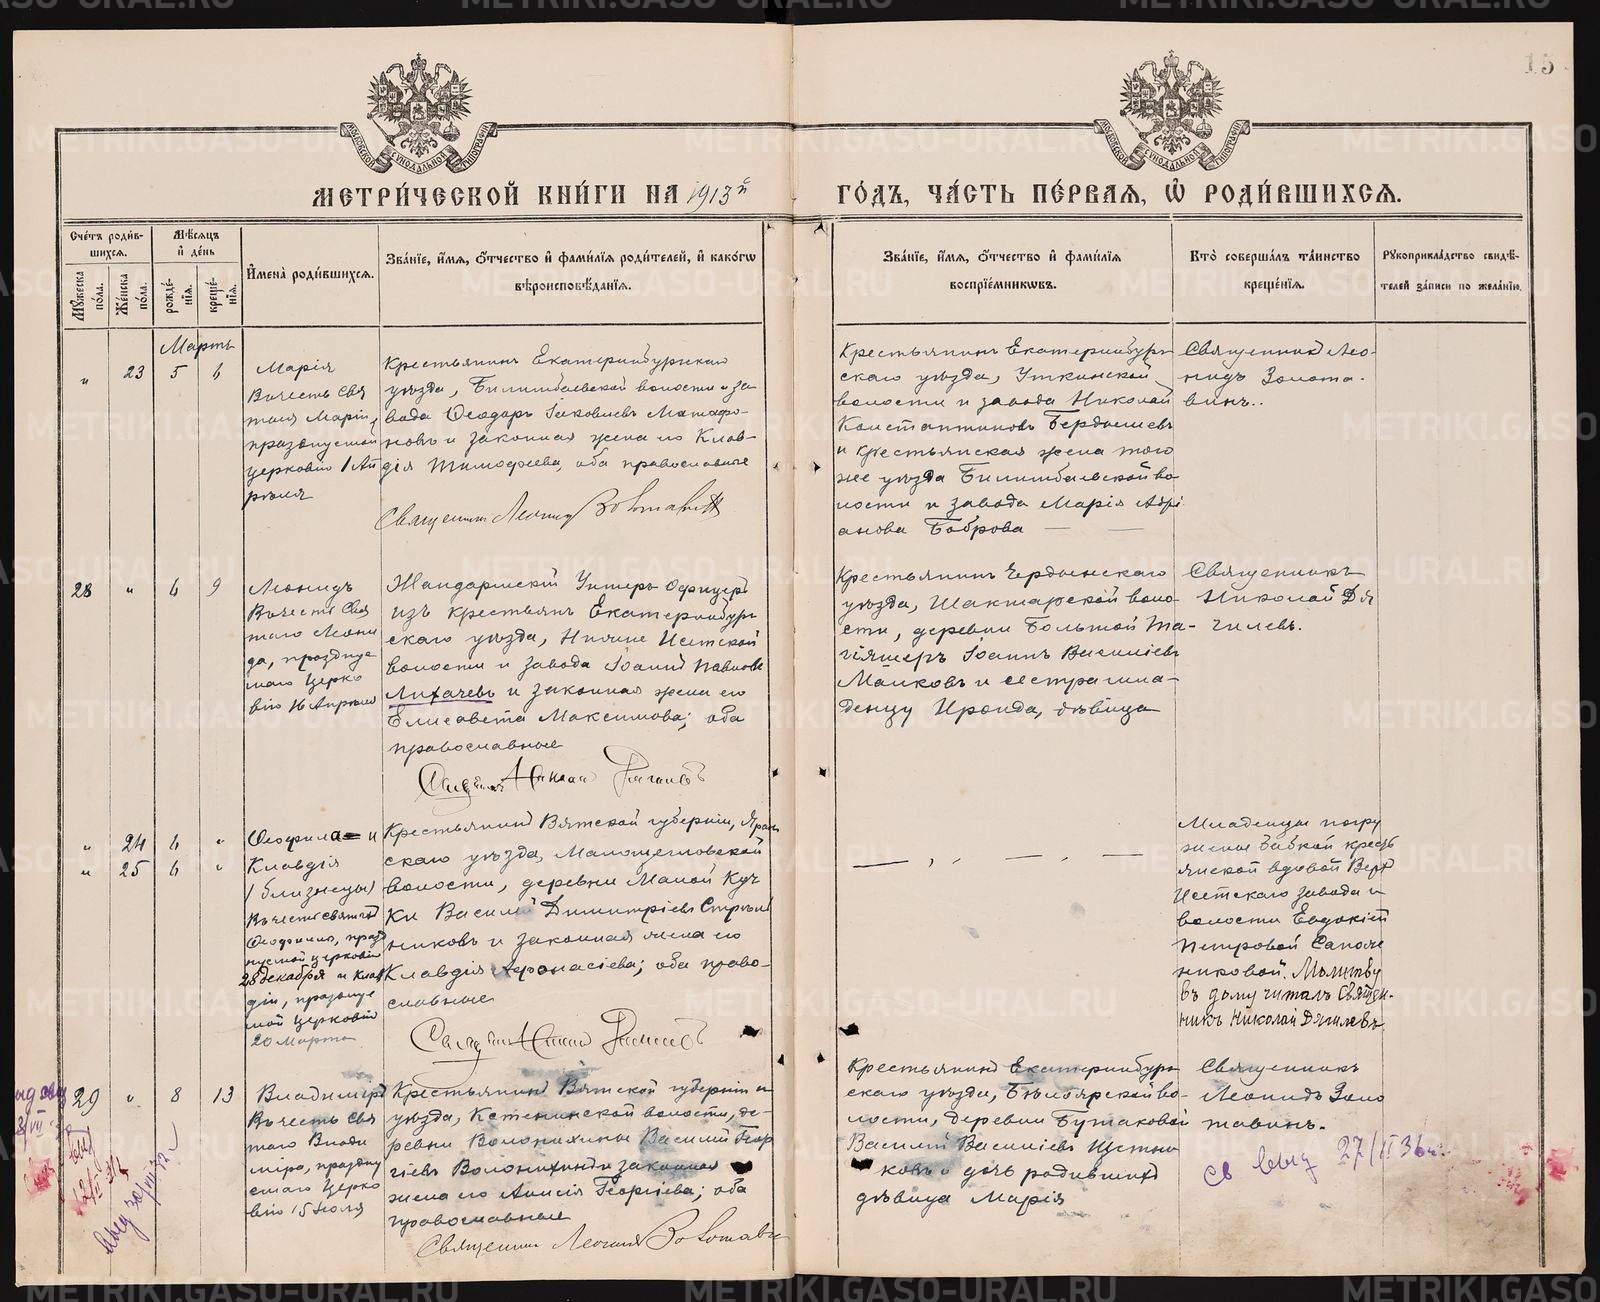 15
МОСКОВСКОЙ СѴНОДАЛЬНОЙ ТИПОГРАФІИ
МОСКОВСКОЙ СѴНОДАЛЬНОЙ ТИПОГРАФІИ
МЕТРИ́ЧЕСКОЙ КНИ́ГИ НА 1913й
ГО́ДЪ, ЧА́СТЬ ПЕ́РВАЯ, Ѡ҆ РОДИ́ВШИХСЯ.
Сче́тъ роди́в-
шихся.
Мꙋ́жеска по́ла.
Же́нска по́ла.
Мѣ́сяцъ
и҆ де́нь
рожде́-
нїя.
креще́-
нїя.
И҆мена̀ роди́вшихся.
Зва́нїе, и҆́мя, ѻ҆́тчество и҆ фами́лїя роди́телей, и҆ како́гѡ
вѣроисповѣ́данїя.
Зва́нїе, и҆́мя, ѻ҆́тчество и҆ фами́лїя
воспрїе́мникѡвъ.
Кто̀ соверша́лъ та́инство
креще́нїя.
Рꙋкоприкла́дство свидѣ́-
телей за́писи по жела́нїю.
Мартъ
" 23 5 6
Марія
Въ честь Свя
тыя Маріи,
празднуемой
церковію 1 Ап
рѣля
Крестьянинъ Екатеринбургскаго
уѣзда, Билимбаевской волости и за
вода Ѳеодоръ Іаковлевъ Матафо-
новъ и законная жена его Клав-
дія Тимофеева, оба православные
Священникъ Леонид Золотавин
Крестьянинъ Екатеринбург
скаго уѣзда, Уткинской
волости и завода Николай
Константиновъ Бердышевъ
и крестьянская жена того
же уѣзда Билимбаевской во
лости и завода Марія Адрі
анова Боброва
Священникъ Лео-
нидъ Золота-
винъ..
28 " 6 9
Леонидъ
Въ честь Свя
таго Леони
да, праздную
маго Церко
вію 16 Апрѣля
Жандармскій Унтеръ Офицеръ
изъ крестьянъ Екатеринбург
скаго уѣзда, Нижне Исетской
волости и завода Іоаннъ Павловъ
Лихачевъ и законная жена его
Елисавета Максимова; оба
православные
Священник Николай Дягилевъ
Крестьянинъ Чердынскаго
уѣзда, Шакшерской воло-
сти, деревни Большой
Іоаннъ Василіевъ
Малковъ и сестра мла-
денцу Ираида, дѣвица
Священникъ
Николай Дя
гилевъ.
" 24 6 "
" 25 6 "
Ѳеофила и
Клавдія
(близнецы)
Въ честь святой
Ѳеофилы, празд
нуемой церковію
28 декабря и Клав
діи, праздную
мой Церковію
20 Марта
Крестьянинъ Вятской губерніи, Яран
скаго уѣзда,
волости, деревни Малой
Василій Димитріевъ
и законная жена его
Клавдія Аѳонасіева; оба право-
славные
Священник Николай Дягилевъ
Младенцы погру
жены бабкой крест
янской вдовой Верх
Исетскаго завода и
волости Евдокіей
Петровой Сапож
никовой. Молитву
въ дому читалъ Священ-
никъ Николай Дягилевъ
29 " 8 13
Владиміръ
Въ честь Свя
таго Влади
міра, праздну
емаго Церко
вію 15 Іюля
Крестьянинъ Вятской губерніи и
уѣзда, Кстининской волости, де-
ревни Василій Геор
гіевъ и законная
жена его Анисія Георгіева; оба
православные
Священник Леонид Золотавин
Крестьянинъ Екатеринбург
скаго уѣзда, Бѣлоярской во-
лости, деревни Бутаковой
Василій Василіевъ
и дочь
дѣвица Марія
Священникъ
Леонидъ Золо
тавинъ.
св выд 27/II 36 г.